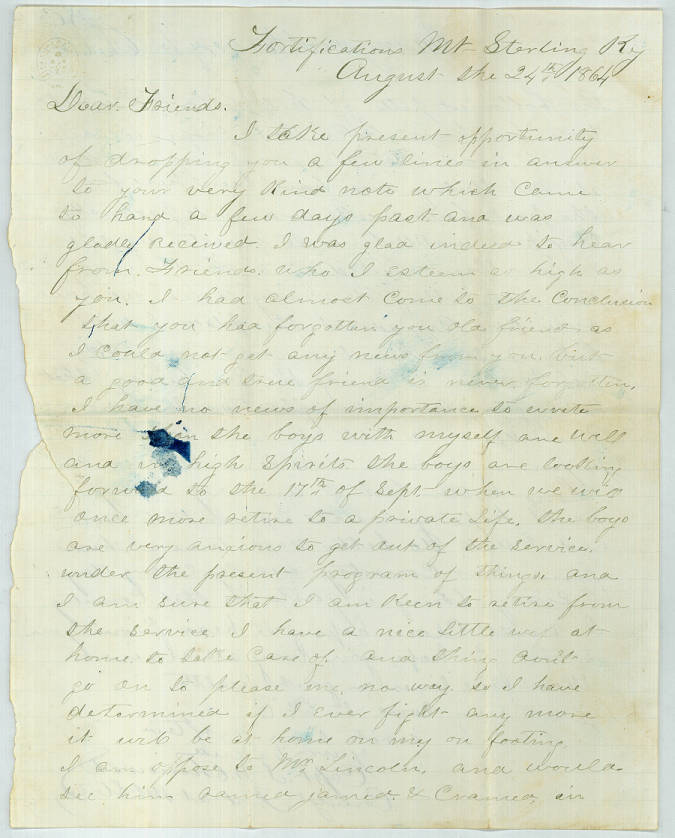 Fortifications Mt Sterling Ky
August the 24th 1864
Dear Friends.
I take present opportunity
of dropping you a few lines in answer
to your very kind note which came
to hand a few days past and was
gladly received. I was glad indeed to hear
from Friends. who I esteem so high as
you. I had almost come to the conclusion
that you had forgotten you old friend as
I could not get any news from you but
a good and true friend is never forgotten.
I have no news of importance to write
more than the boys with myself are well
and in high Spirits the boys are looking
forward to the 17th of Sept when we will
once more retire to a private life. the boys
are very anxious to get out of the service.
under the present program of things and
I am sure that I am Keen to retire from
the service I have a nice little wif at
home to take care of. and thing don't
go on to please me no way so I have
determined if I ever fight any more
it will be at home on my on footing
I am oppose to Mr Lincoln, and would
see him damed jamed & Cramed in